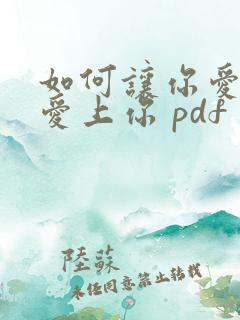 如何讓你愛
愛上你 pdf
陸蘇
未經同意禁止轉載